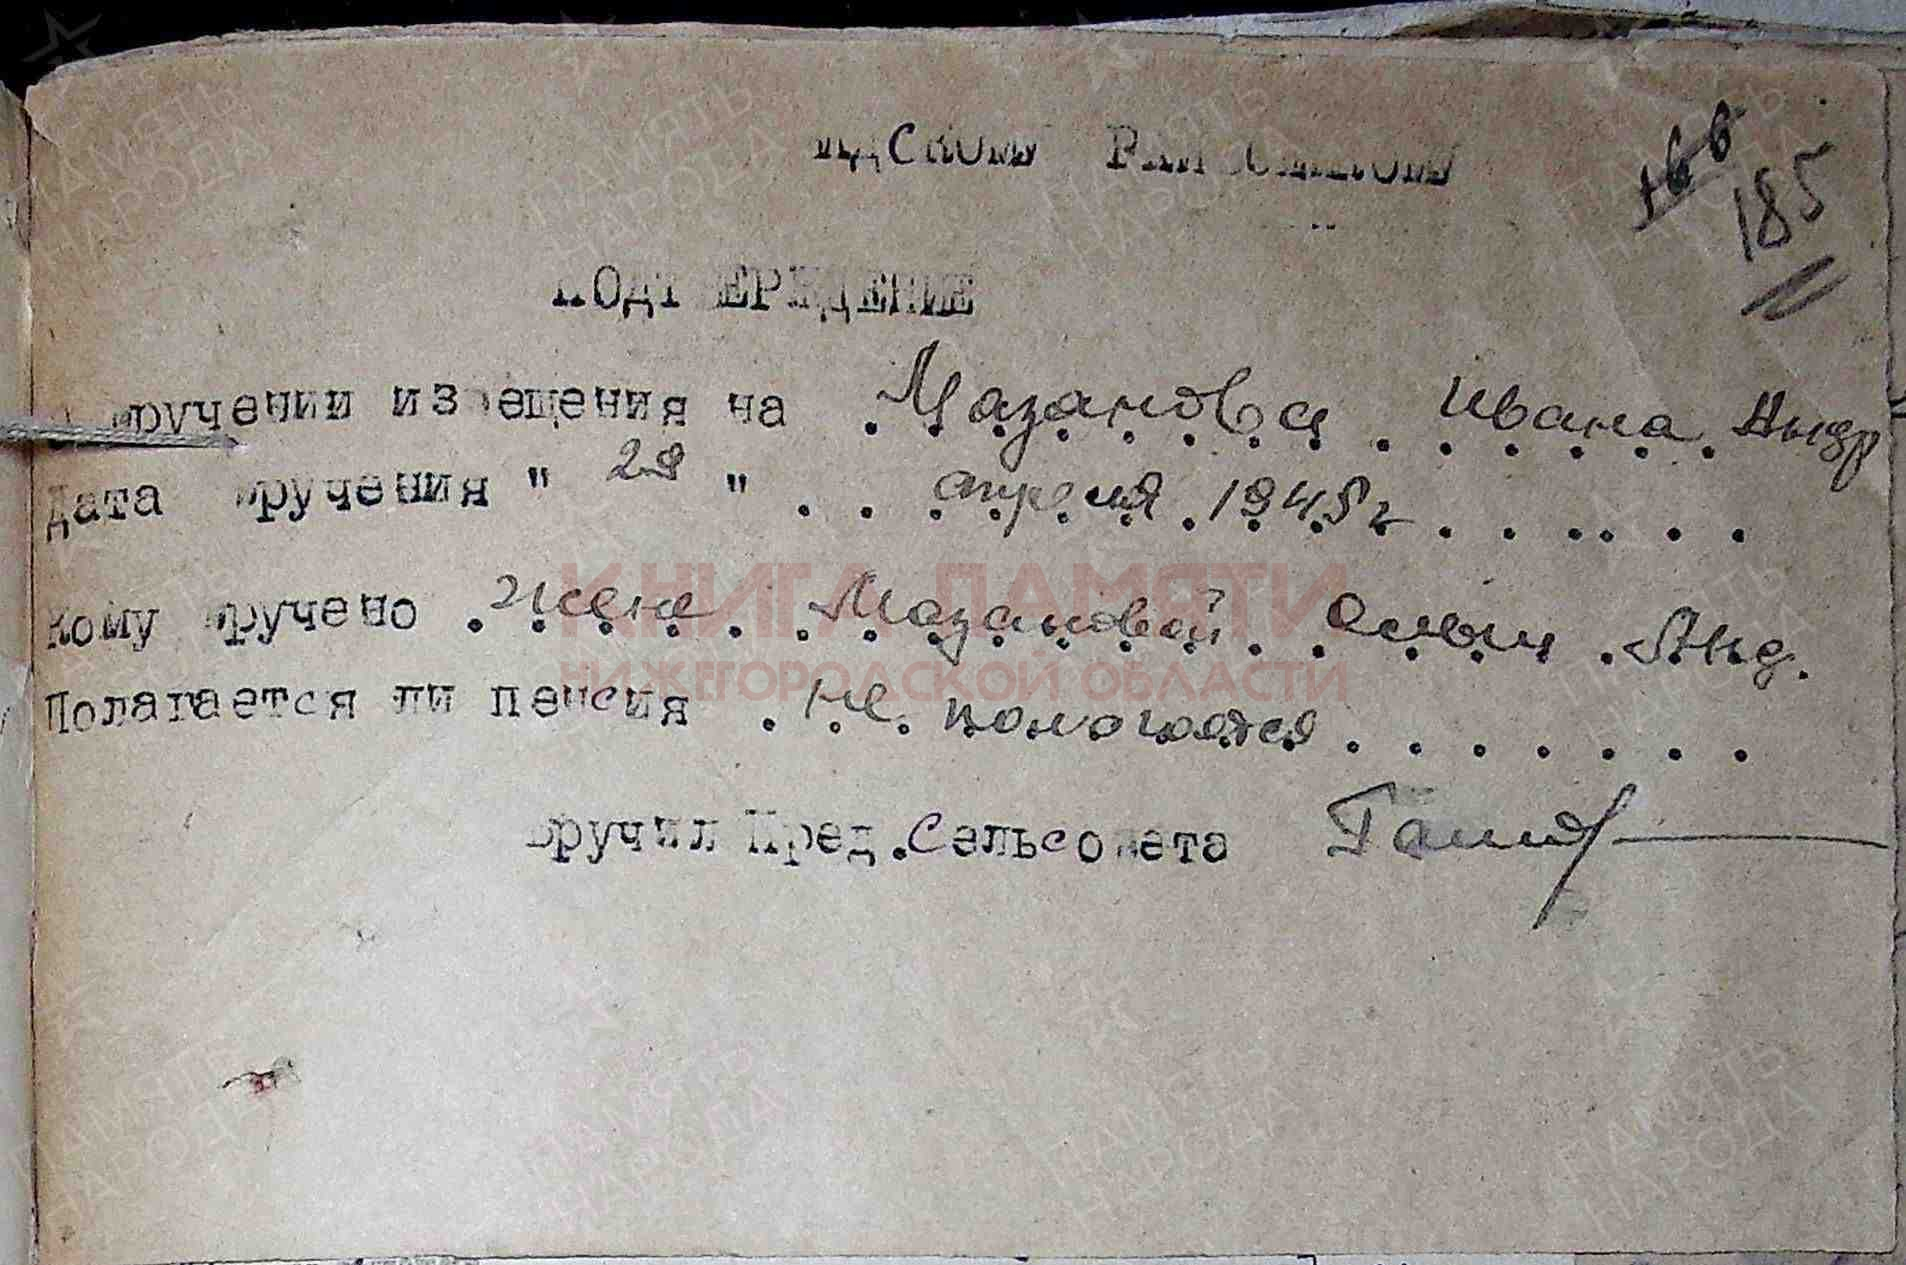 166
185
ПОДТВЕРЖДЕНИЕ
вручении извещения на Мазанова Ивана Андр
Дата вручения " 29 " апреля 1945 г
Кому вручено Жене Мазановой Анд.
Полагается ли пенсия не пологается
Вручил Пред. Сельсовета
КНИГА ПАМЯТИ
НИЖЕГОРОДСКОЙ ОБЛАСТИ
ПАМЯТЬ НАРОДА